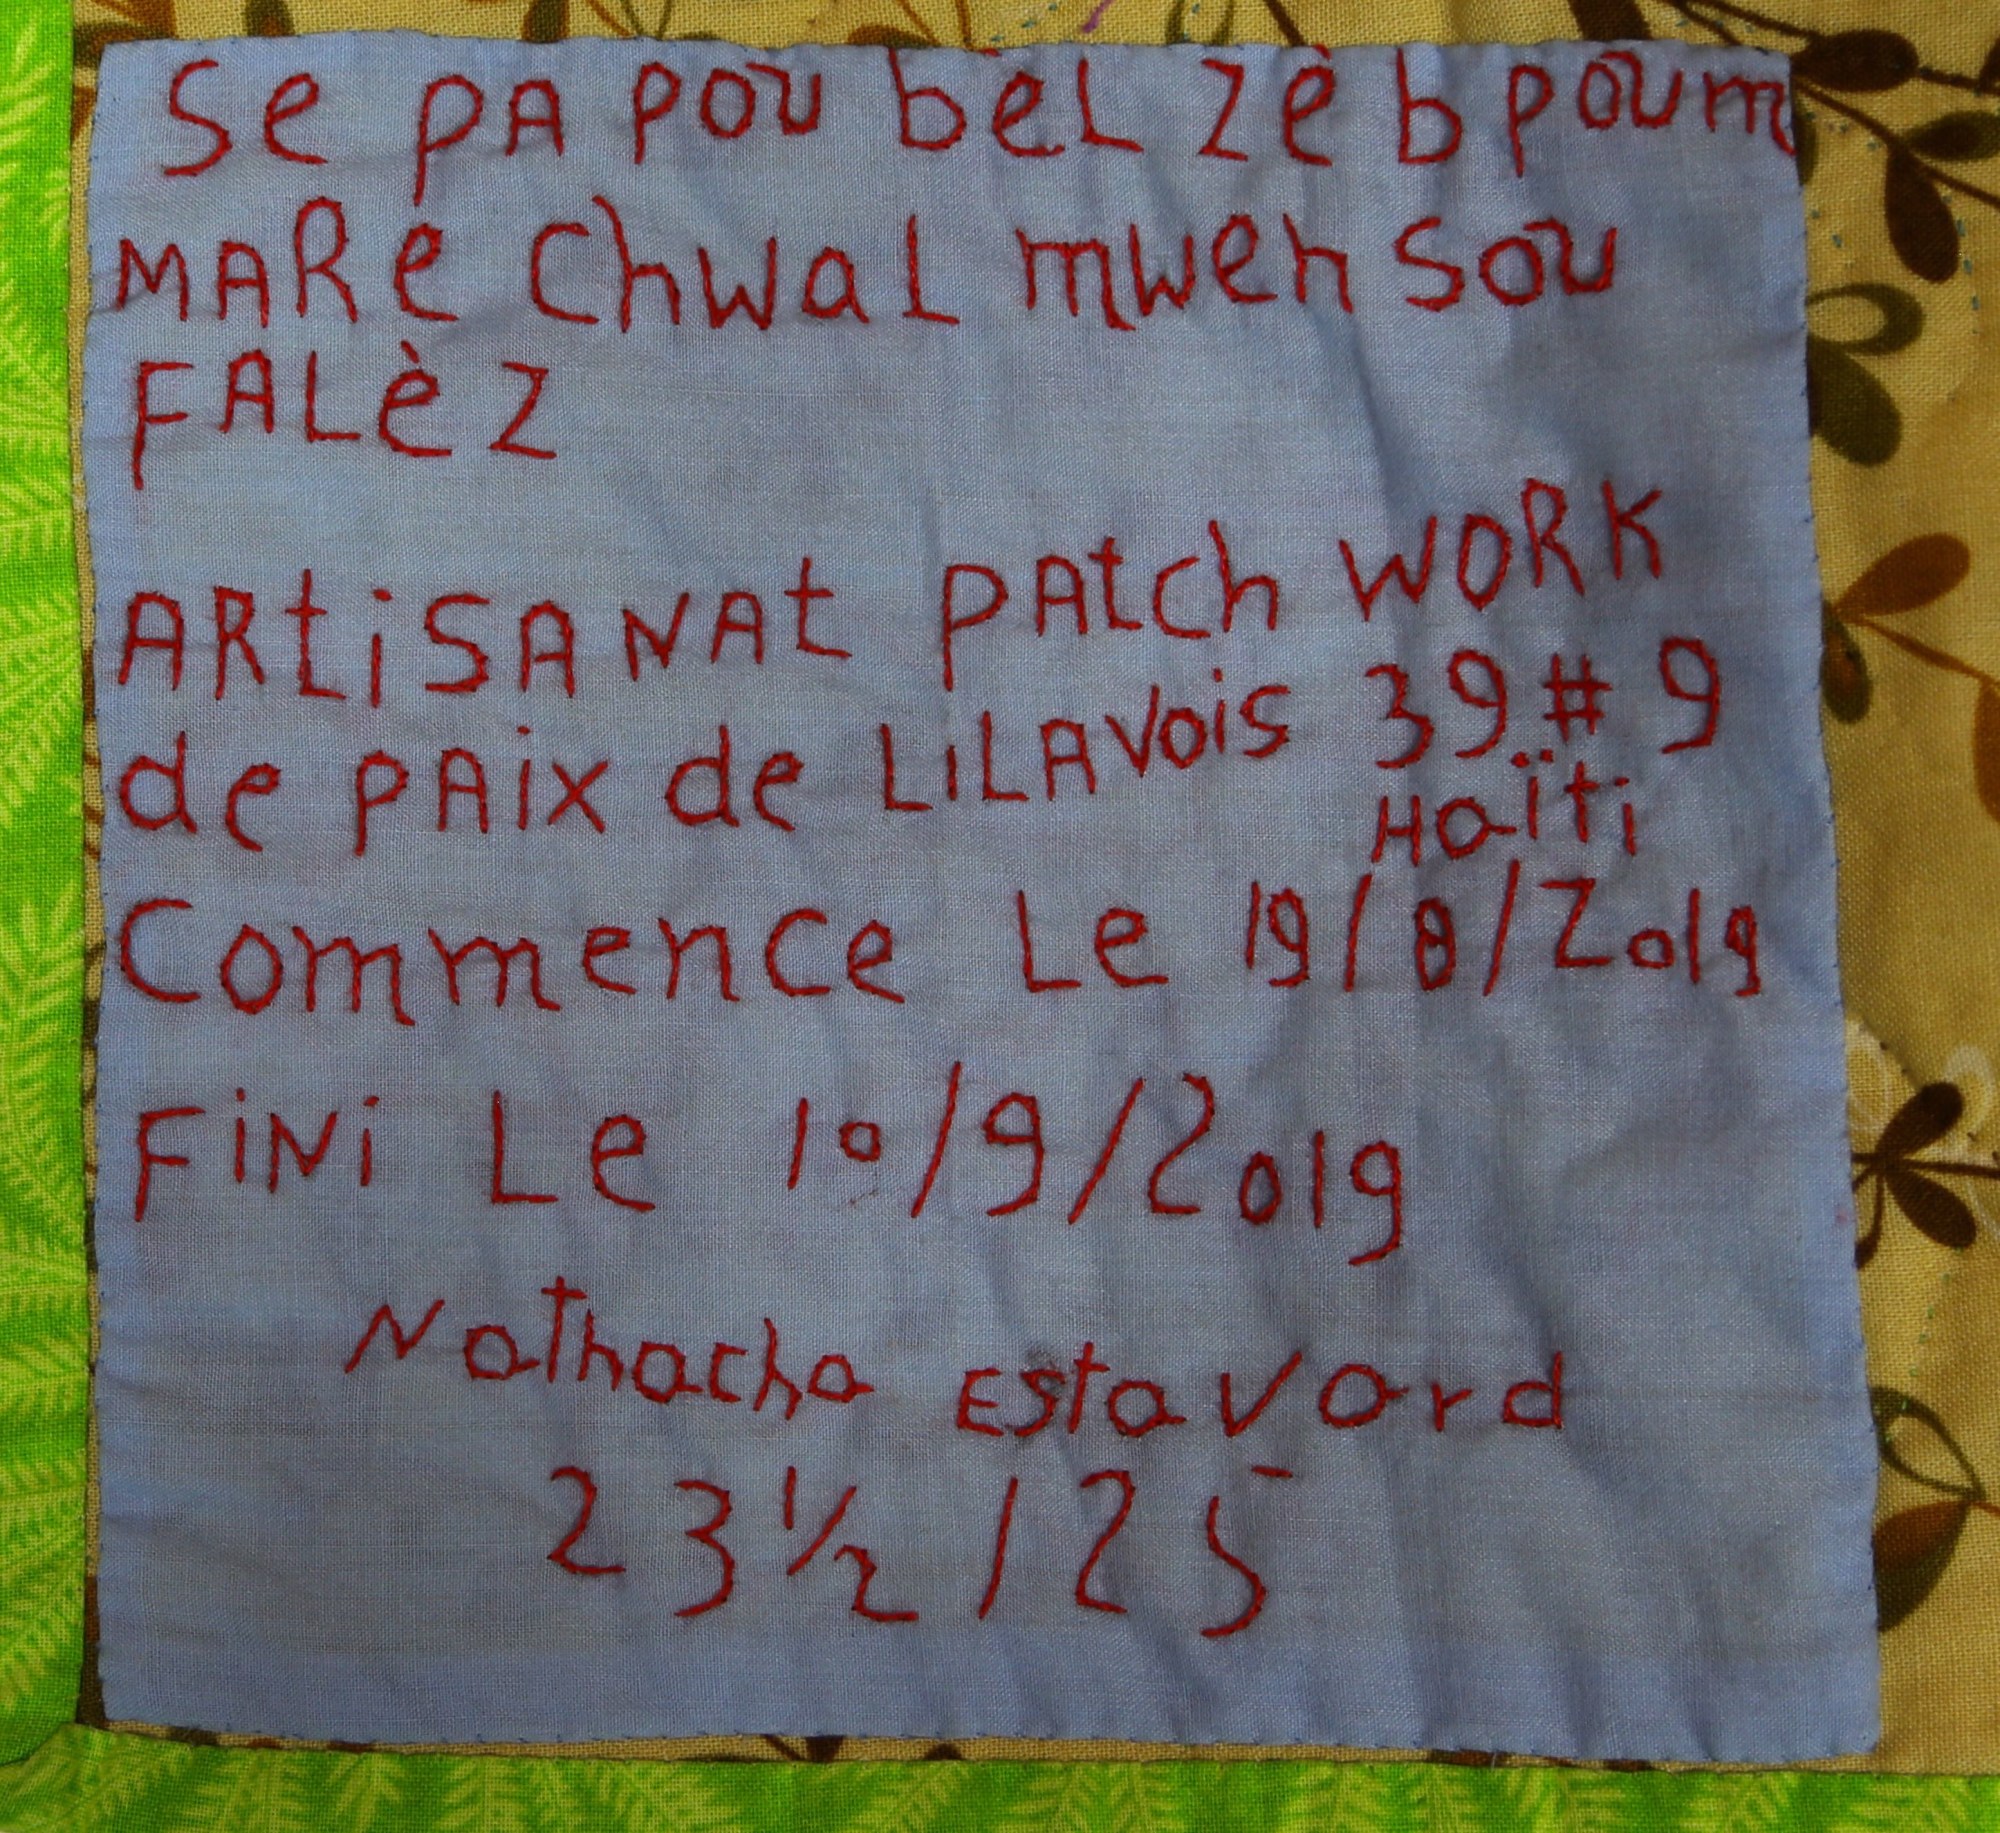 Se PA POU beL zèb poum
MARe ChwaL mwen SOU
FALèz
ARtiSANAt PAtch WORK
de PAix de LiLAVois 39 # 9
Haïti
Commence Le 19/8/2019
FiNi Le 10/9/2019
Nathacha Estavard
23 1/2 / 25